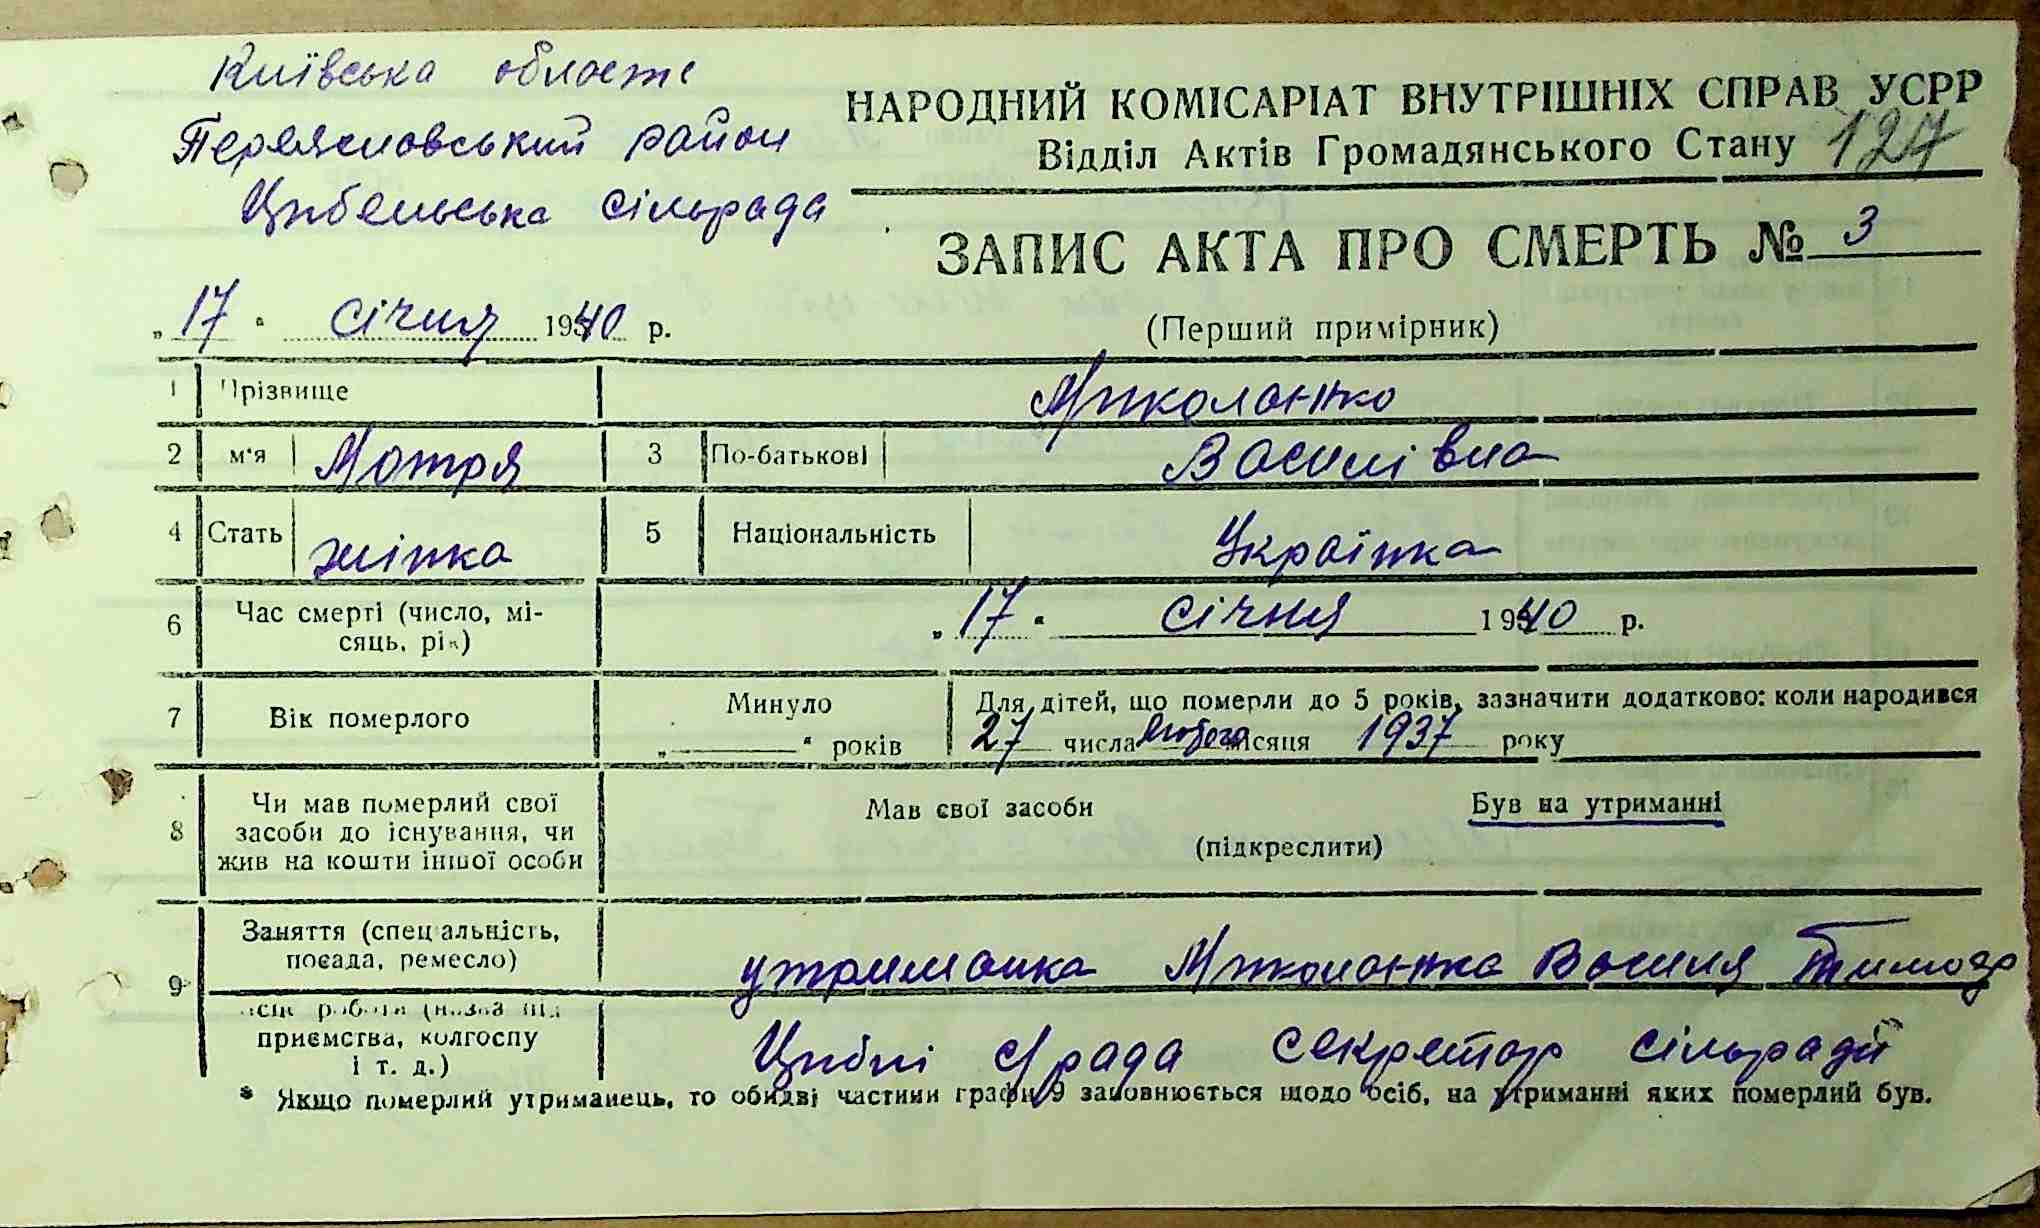 Київська область
Переяславський район
Цибельська сільрада
НАРОДНИЙ КОМІСАРІАТ ВНУТРІШНІХ СПРАВ УСРР
Відділ Актів Громадянського Стану 127
ЗАПИС АКТА ПРО СМЕРТЬ № 3
(Перший примірник)
„17“ січня 1940 р.
1 Прізвище
2 м'я Мотря 3 По-батькові Василівна
4 Стать жінка 5 Національність Українка
6 Час смерті (число, мі-
сяць, рік) „17“ січня 1940 р.
7 Вік померлого Минуло „ “ років Для дітей, що померли до 5 років, зазначити додатково: коли народився
27 числа лютого місяця 1937 року
8 Чи мав померлий свої
засоби до існування, чи
жив на кошти іншої особи
Мав свої засоби Був на утриманні
(підкреслити)
9 Заняття (спеціальність,
посада, ремесло) утриманка Василя Тимофр
місце роботи (назва під
приємства, колгоспу
і т. д.) Циблі с/рада секретар сільради
* Якщо померлий утриманець, то обидві частини графи 9 заповнюється щодо осіб, на утриманні яких померлий був.